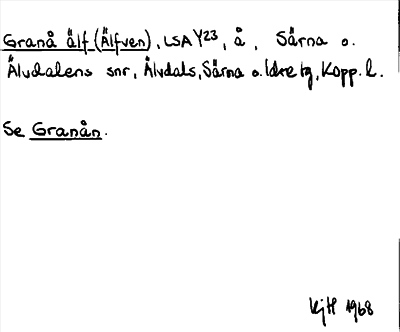 Granå älf (Älfven), LSA Y23, å, Särna o.
Älvdalens snr, Älvdals, Särna o. Idre tg, Kopp. l.
Se Granån.
KjH 1968